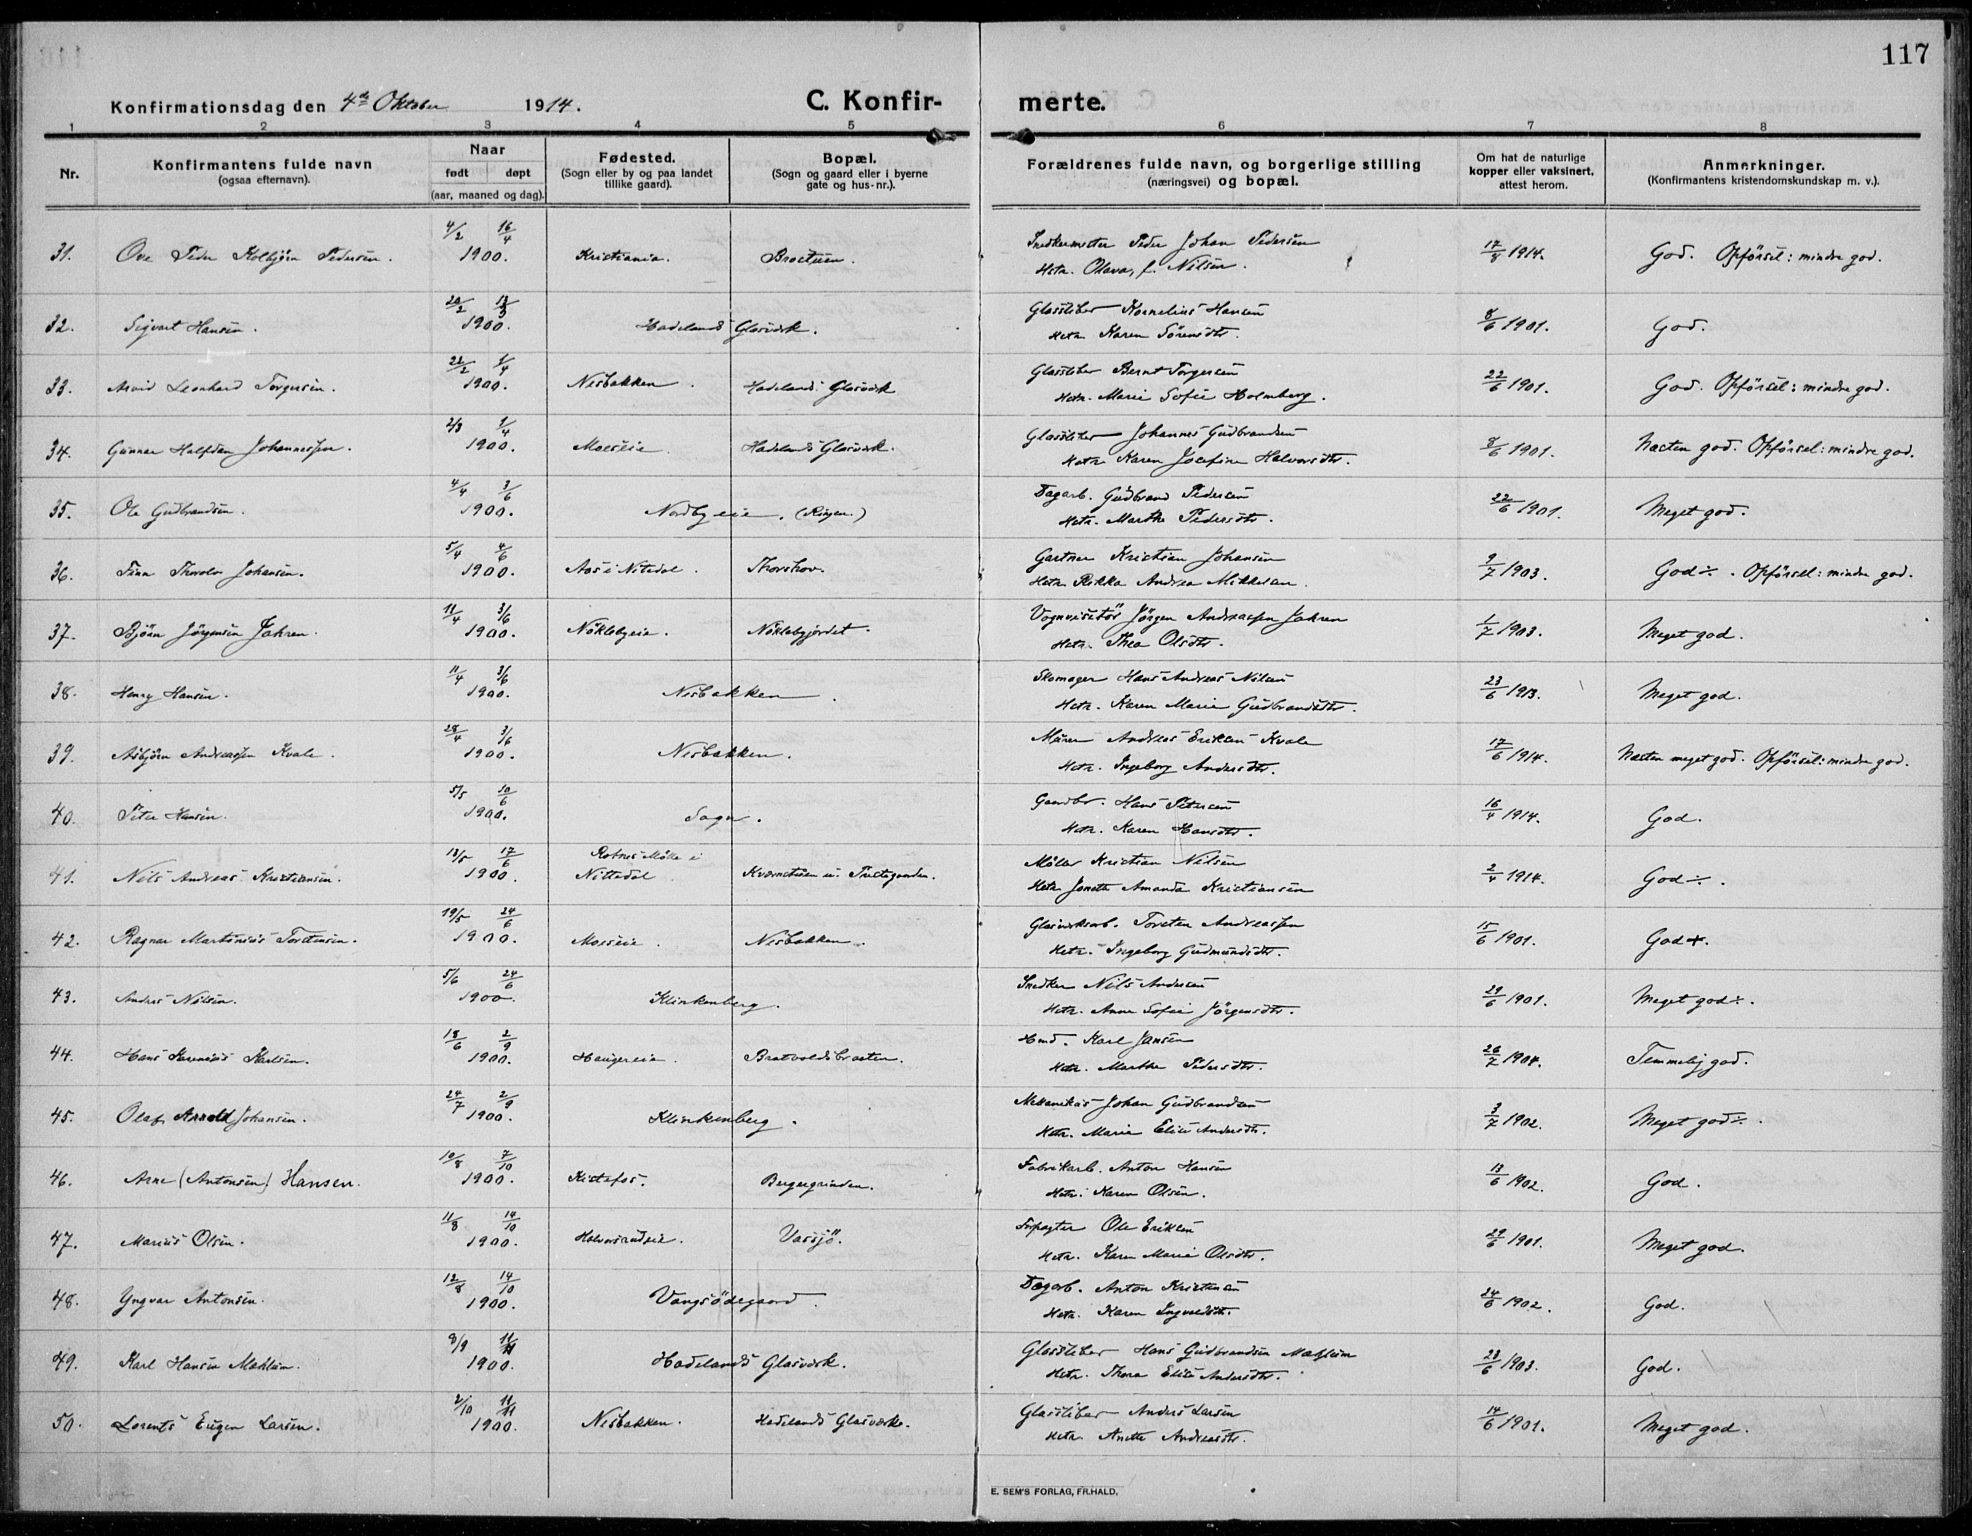 117
Konfirmationsdag den 4de Oktober 1914.
C. Konfir-
merte.
1 2 3 4 5 6 7 8
Nr.
Konfirmantens fulde navn
(ogsaa efternavn).
Naar
født døpt
(aar, maaned og dag).
Fødested.
(Sogn eller by og paa landet
tillike gaard).
Bopæl.
(Sogn og gaard eller i byerne
gate og hus-nr.).
Forældrenes fulde navn, og borgerlige stilling
(næringsvei) og bopæl.
Om hat de naturlige
kopper eller vaksinert,
attest herom.
Anmerkninger.
(Konfirmantens kristendomskundskap m. v.).
31. Ove Peder Kolbjørn Pedersen. 4/2 16/4 1900. Kristiania. Snedkermester Peder Johan Pedersen
Hstr. Olava, f. Nilsen. 17/8 1914. God. Opførsel: mindre god.
32. Sigvart Hansen. 20/2 1900. Hadelands Glasværk. Glassliber Kornelius Hansen
Hstr. Karen Sørensdtr. 8/6 1901. God.
33. Arvid Leonhard Torgersen. 22/2 1/4 1900. Nesbakken. Hadelands Glasværk Glassliber Bernt Torgersen
Hstr. Marie Sofie Holmberg. 22/6 1901. God. Opførsel: mindre god.
34. Gunnar Halfdan Johannessen. 2/3 1/4 1900. Moeseie. Hadelands Glasværk. Glassliber Johannes Gudbrandsen
Hstr. Karen Josefine Halvorsdtr. 8/6 1901. Næsten god. Opførsel: mindre god.
35. Ole Gudbrandsen. 4/4 3/6 1900. Nordbyeie. (Ringen.) Dagarb. Gudbrand Pedersen
Hstr. Marthe Pedersdtr. 22/6 1901. Meget god.
36. Finn Thorolv Johansen. 5/4 4/6 1900. Aas i Nitedal. Thorshov. Gartner Kristian Johansen
Hstr. Rikka Andrea Mikkelsen. 9/7 1903. God ÷. Opførsel: mindre god.
37. Bjørn Jørgensen Jahren. 11/4 3/6 1900. Nøklebyeie. Nøklebyjordet. Vognvisitør Jørgen Andreassen Jahren
Hstr. Thea Olsdtr. 1/7 1903. Meget god.
38. Henry Hansen. 11/4 3/6 1900. Nesbakken. Skomager Hans Andreas Nilsen
Hstr. Karen Marie Gudbrandsdtr. 23/6 1913. Meget god.
39. Asbjørn Andreassen Kvale. 28/4 3/6 1900. Nesbakken. Murer Andreas Eriksen Kvale
Hstr. Ingeborg Andersdtr. 17/6 1914. Næsten meget god. Opførsel: mindre god.
40. Peter Hansen. 5/5 10/6 1900. Sogn. Gaardbr. Hans Petersen
Hstr. Karen Hansdtr. 16/4 1914. God.
41. Nils Andreas Kristiansen. 13/5 17/6 1900. Rotnes Mølle i
Nittedal. Kværnstuen u. Prestegaarden. Møller Kristian Nilsen
Hstr. Jonette Amanda Kristiansen 2/4 1914. God ÷.
42. Ragnar Martinius Torstensen. 19/5 24/6 1900. Moeseie. Nesbakken. Glasværksarb. Torsten Andreassen
Hstr. Ingeborg Gudmundsdtr. 15/6 1901. God +.
43. Anders Nilsen. 5/6 24/6 1900. Klinkenberg. Snedker Nils Andersen
Hstr. Anne Sofie Jørgensdtr. 29/6 1901. Meget god ÷.
44. Hans Karenius Karlsen. 18/6 2/9 1900. Haugereie. Bratvoldsbraaten. Hmd. Karl Jansen
Hstr. Marthe Pedersdtr. 26/7 1904. Temmelig god.
45. Olaf Arnold Johansen. 24/7 2/9 1900. Klinkenberg. Mekanikus Johan Gudbrandsen
Hstr. Marie Elise Andersdtr. 3/7 1902. Meget god ÷.
46. Arne (Antonsen) Hansen. 10/8 7/10 1900. Kistefos. Bergergrinden. Fabrikarb. Anton Hansen
Hstr. Karen Olsen. 13/6 1902. God.
47. Marius Olsen. 11/8 14/10 1900. Halvorsrudeie. Vassjø. Forpagter Ole Eriksen
Hstr. Karen Marie Olsdtr. 29/6 1901. Meget god.
48. Yngvar Antonsen. 12/8 14/10 1900. Vangsødegaard. Dagarb. Anton Kristiansen
Hstr. Karen Ingvaldsdtr. 24/6 1902. God.
49. Karl Hansen Mæhlum. 8/9 11/11 1900. Hadelands Glasværk. Glassliber Hans Gudbrandsen Mæhlum
Hstr. Thora Elise Andersdtr. 23/6 1903. God.
50. Lorents Eugen Larsen. 2/10 11/11 1900. Nesbakken. Hadelands Glasværk. Glassliber Anders Larsen
Hstr. Anette Andreasdtr. 14/6 1901. Meget god.
E. SEM'S FORLAG, FR.HALD.